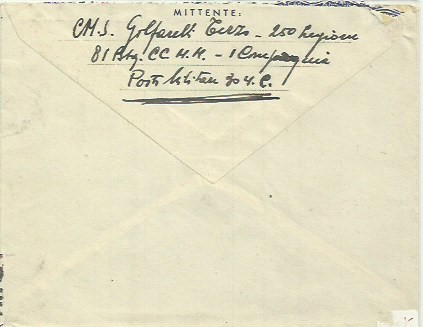 MITTENTE:
C.M.S. Golfarelli Terzo - 250 Legione
81 Btg. CC. N.N. - 1 Compagnia
Posta Militare 304. C.